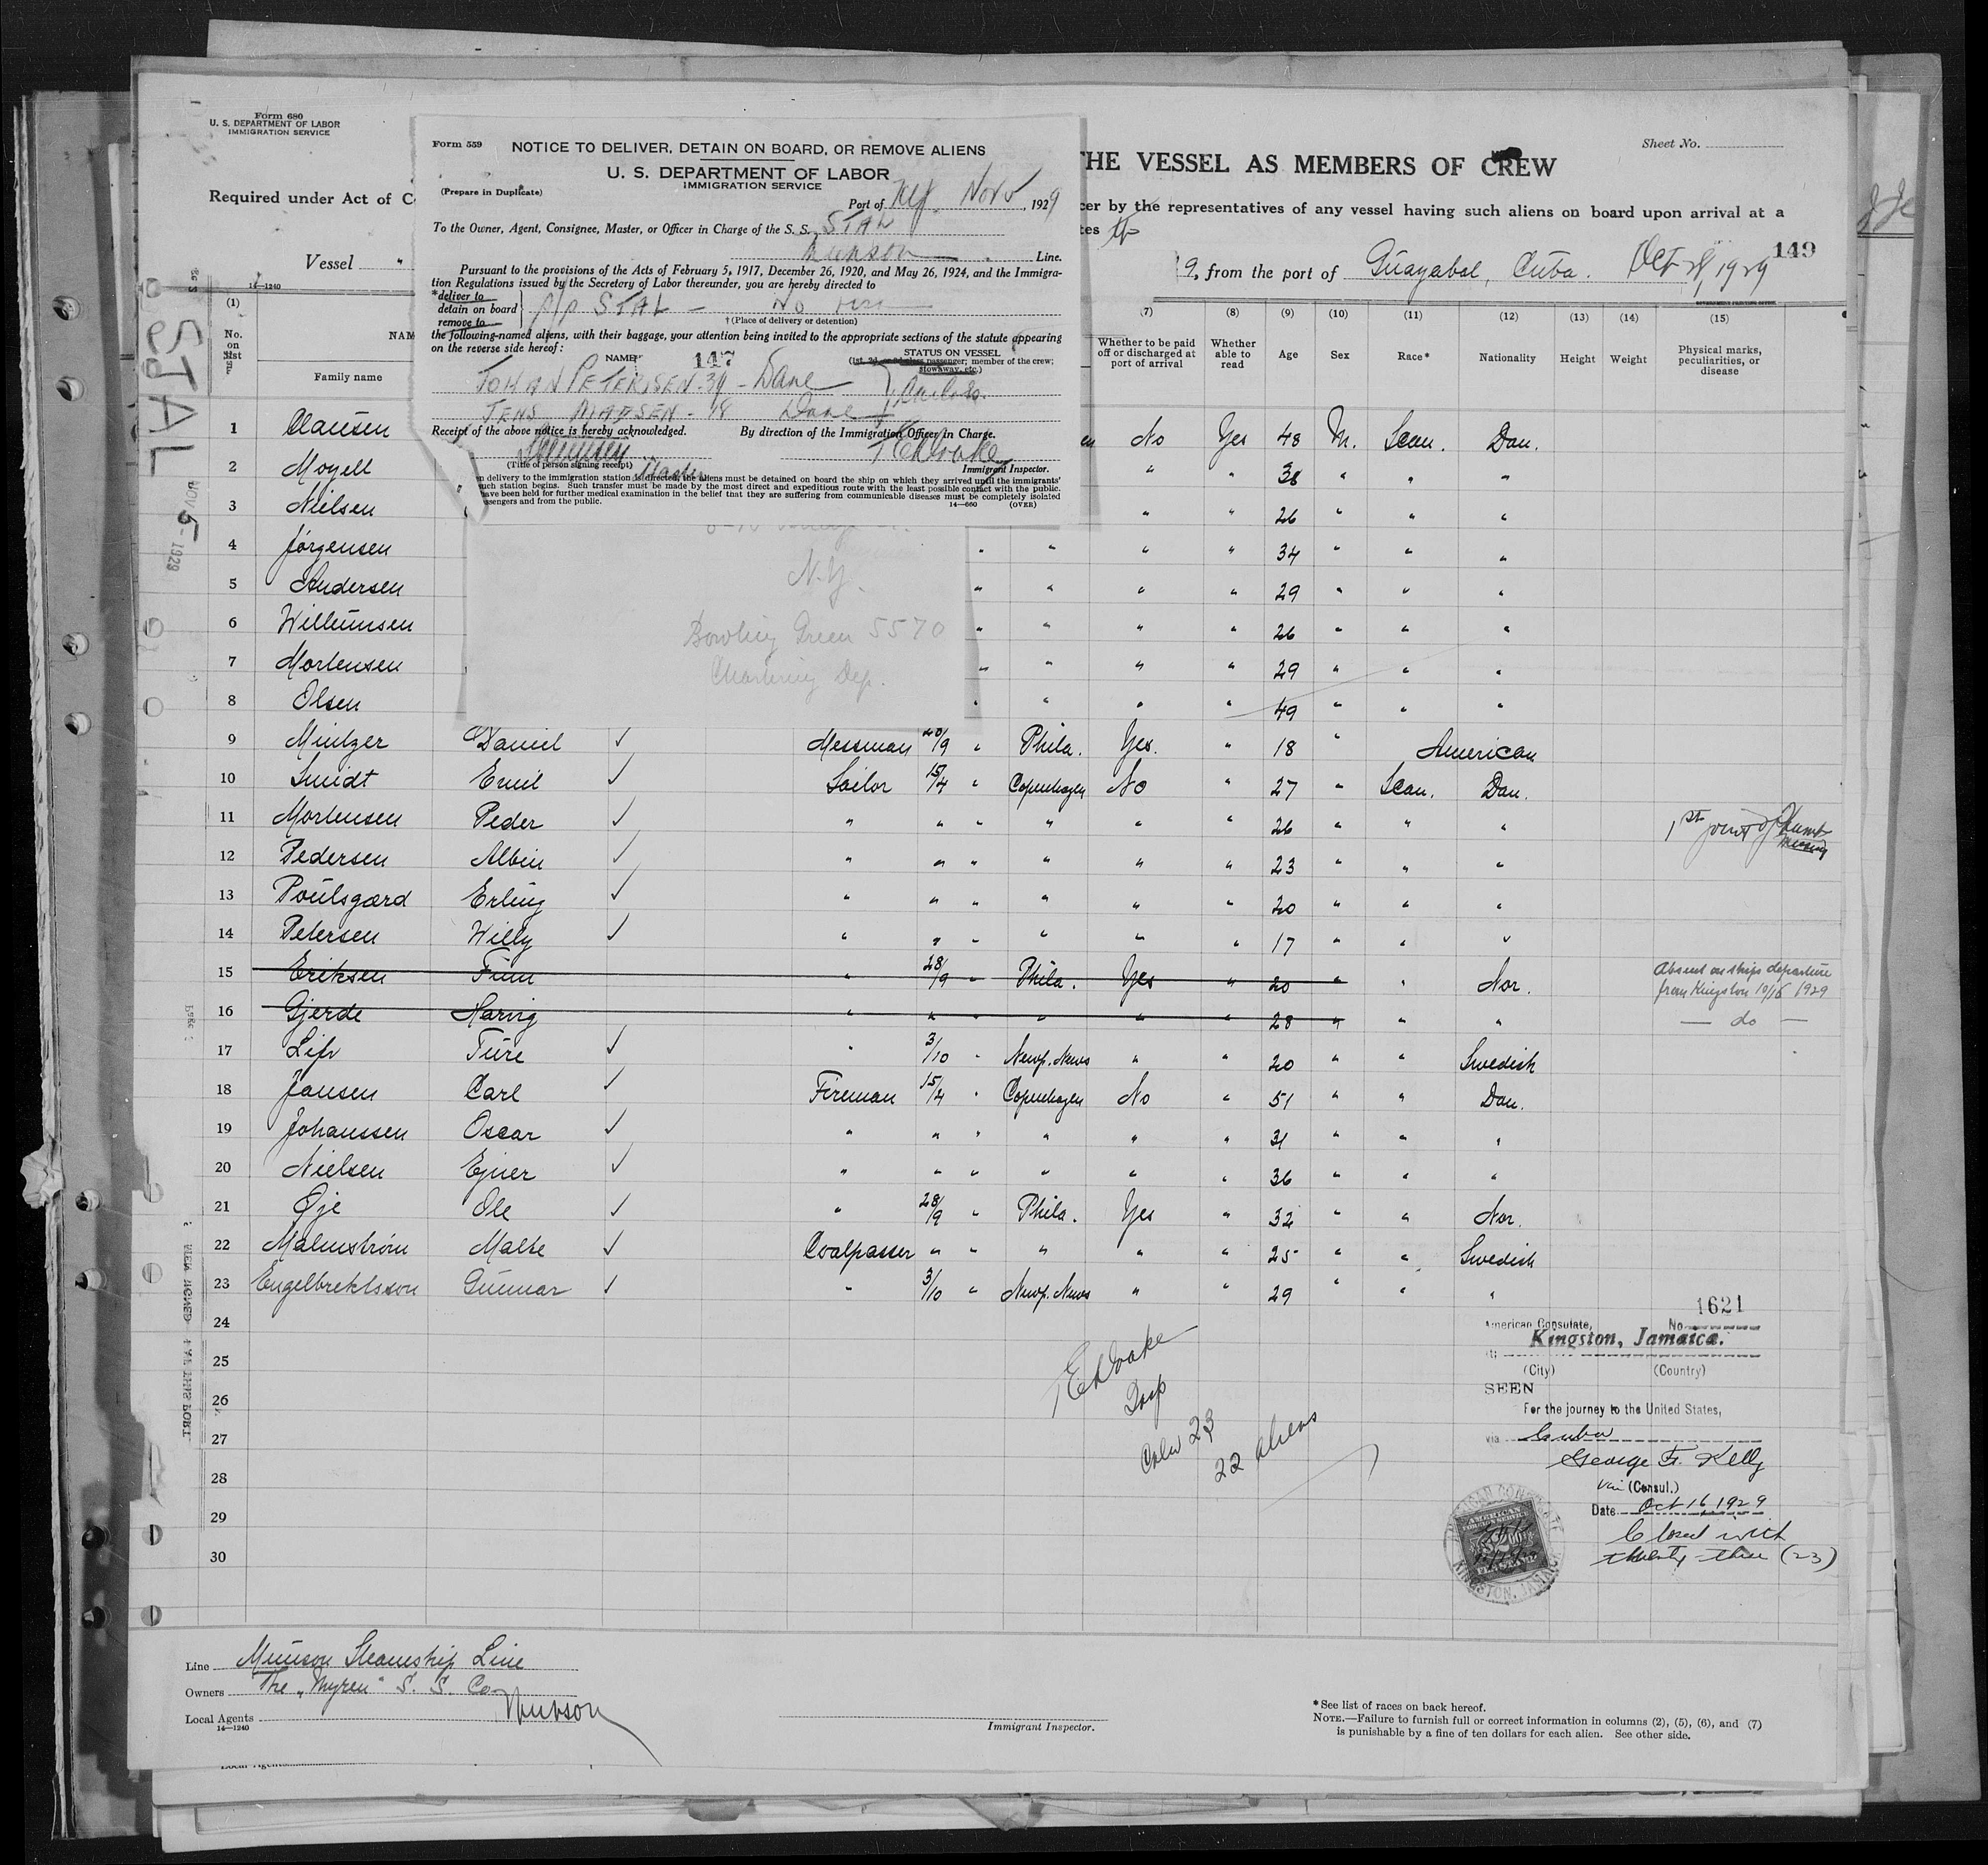 Form 680
U. S. DEPARTMENT OF LABOR
IMMIGRATION SERVICE
Required under Act of C
Vessel "
14—1240
Form 559
NOTICE TO DELIVER, DETAIN ON BOARD, OR REMOVE ALIENS
U. S. DEPARTMENT OF LABOR
IMMIGRATION SERVICE
(Prepare in Duplicate)
Port of Nov 5, 1929
To the Owner, Agent, Consignee, Master, or Officer in Charge of the S. S. STAL
Munson Line.
Pursuant to the provisions of the Acts of February 5, 1917, December 26, 1920, and May 26, 1924, and the Immigra-
tion Regulations issued by the Secretary of Labor thereunder, you are hereby directed to
*deliver to
detain on board
remove to
STAL — No
† (Place of delivery or detention)
the following-named aliens, with their baggage, your attention being invited to the appropriate sections of the statute appearing
on the reverse side hereof:
NAME 147
STATUS ON VESSEL
(1st, 2d, or 3d class passenger; member of the crew;
stowaway, etc.)
JOHAN PETERSEN - 39 - Dane
JENS MADSEN - 18 Dane
Receipt of the above notice is hereby acknowledged.
By direction of the Immigration Officer in Charge.
(Title of person signing receipt) Master
Immigrant Inspector.
n delivery to the immigration station is directed, the aliens must be detained on board the ship on which they arrived until the immigrants'
uch station begins. Such transfer must be made by the most direct and expeditious route with the least possible contact with the public.
ave been held for further medical examination in the belief that they are suffering from communicable diseases must be completely isolated
ssengers and from the public.
14—660 (OVER)
N.Y.
Bowling Green 5570
Chartering Dep.
Sheet No.
THE VESSEL AS MEMBERS OF CREW
cer by the representatives of any vessel having such aliens on board upon arrival at a
tes
149
9, from the port of Guayabal, Cuba. Oct 28, 1929
GOVERNMENT PRINTING OFFICE
STAL
NOV 5 - 1929
(1) (7) (8) (9) (10) (11) (12) (13) (14) (15)
No. on list
NAM
Family name
Whether to be paid off or discharged at port of arrival
Whether able to read
Age
Sex
Race*
Nationality
Height
Weight
Physical marks, peculiarities, or disease
1 Clausen No Yes 48 M. Scan. Dan.
2 Moyell " " 38 " " "
3 Nielsen " " 26 " " "
4 Jörgensen " " " " 34 " " "
5 Andersen " " " " 29 " " "
6 Willumsen " " " " 26 " " "
7 Mortensen " " " " 29 " " "
8 Olsen " " " " 49 " " "
9 Mintzer Daniel ✓ Messman 20/9 " Phila. Yes. " 18 " American
10 Smidt Emil ✓ Sailor 15/4 " Copenhagen No " 27 " Scan. Dan.
11 Mortensen Peder ✓ " " " " " " 26 " " " 1st joint of thumb missing
12 Pedersen Albin ✓ " " " " " " 23 " " "
13 Poulsgærd Erling ✓ " " " " " " 20 " " "
14 Petersen Willy ✓ " " " " " " 17 " " "
15 Eriksen Finn " 28/9 " Phila. Yes " 20 " " Nor. Absent on ships departure from Kingston 10/16 1929
16 Gjerde Harvig " " " " " " 28 " " " — do —
17 Lifr Ture ✓ " 3/10 " Newp. News " " 20 " " Swedish
18 Jansen Carl ✓ Fireman 15/4 " Copenhagen No " 51 " " Dan.
19 Johanssen Oscar ✓ " " " " " " 31 " " "
20 Nielsen Ejner ✓ " " " " " " 36 " " "
21 Øje Ole ✓ " 28/9 " Phila. Yes " 32 " " Nor.
22 Malmström Malte ✓ Coalpasser " " " " " 25 " " Swedish
23 Engelbrektsson Gunnar ✓ " 3/10 " Newp. News " " 29 " " "
24
25
26
27
28
29
30
Insp
Crew 23
22 aliens
1621
American Consulate, No.
Kingston, Jamaica.
(City) (Country)
SEEN
For the journey to the United States,
via Cuba
George F. Kelly
Vice (Consul.)
Date Oct 16, 1929
Closed with
twenty-three (23)
AMERICAN CONSULATE
KINGSTON, JAMAICA
Line Munson Steamship Line
Owners The "Myren" S. S. Co.
Local Agents Munson
14—1240
Immigrant Inspector.
*See list of races on back hereof.
NOTE.—Failure to furnish full or correct information in columns (2), (5), (6), and (7)
is punishable by a fine of ten dollars for each alien. See other side.